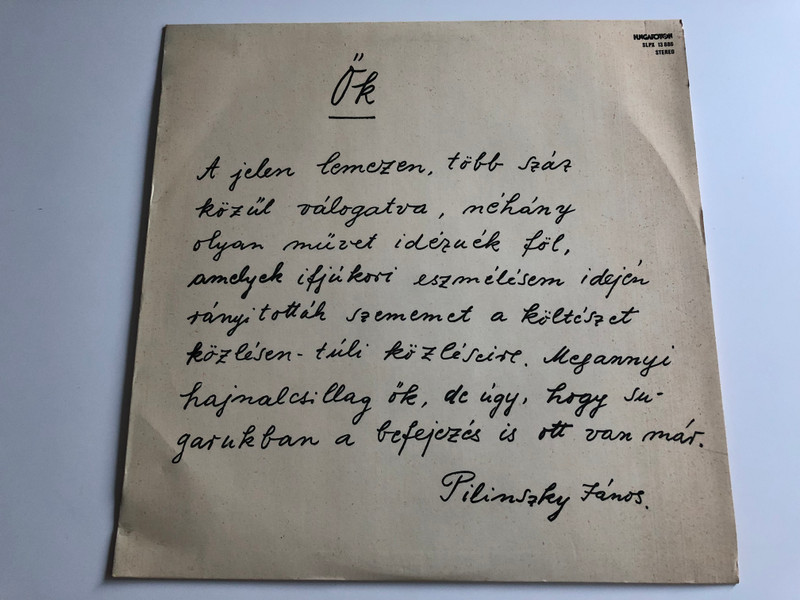 HUNGAROTON
SLPX 13 888
STEREO
Ők
A jelen lemezen, több száz
közűl válogatva, néhány
olyan művet idéznék föl,
amelyek ifjúkori eszmélésem idején
rányitották szememet a költészet
közlésen-túli közléseire. Megannyi
hajnalcsillag ők, de úgy, hogy su-
garukban a befejezés is ott van már.
Pilinszky János.